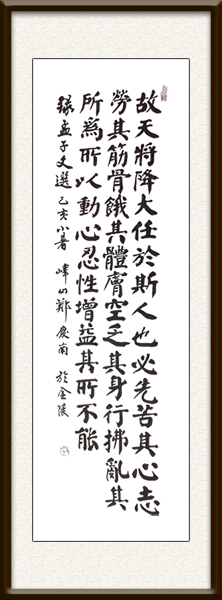 故天將降大任於斯人也必先苦其心志
勞其筋骨餓其體膚空乏其身行拂亂其
所爲所以動心忍性增益其所不能
錄孟子文選 乙亥小暑 山 慶南 於金陵